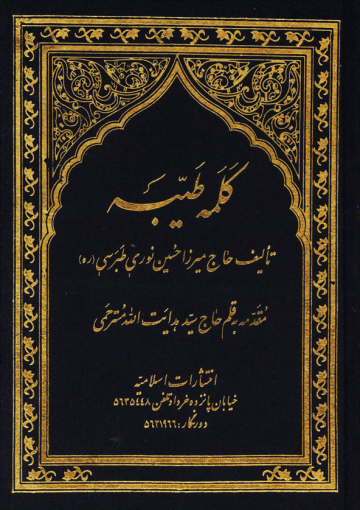 کلمه طَیّبه
تألیف حاج میرزا حسین نوری طبرسی (ره)
مُقدّمه به قلم حاج سیّد هدایت الله مُسترحمی
انتشارات اسلامیّه
خیابان پانزده خرداد تلفن ۵۶۳۵۴۴۸
دورنگار: ۵۶۲۱۹۶۶